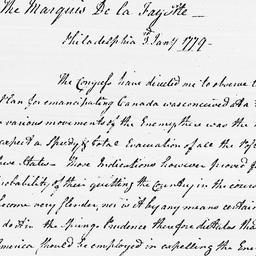 The Marquis De la Fayette —
Philadelphia 3d Jany 1779 —
The Congress have directed me to observe t
Plan for emancipating Canada was conceived at a
various movements of the Enemy there was the
expect a Speedy & total Evacuation of all the Post
these States — More Indications however proved f
probability of their quitting the Country in the cours
become very slender, nor is it by any means certain
do it in the Spring Prudence therefore dictates tha
America should be employed in expelling the Ene